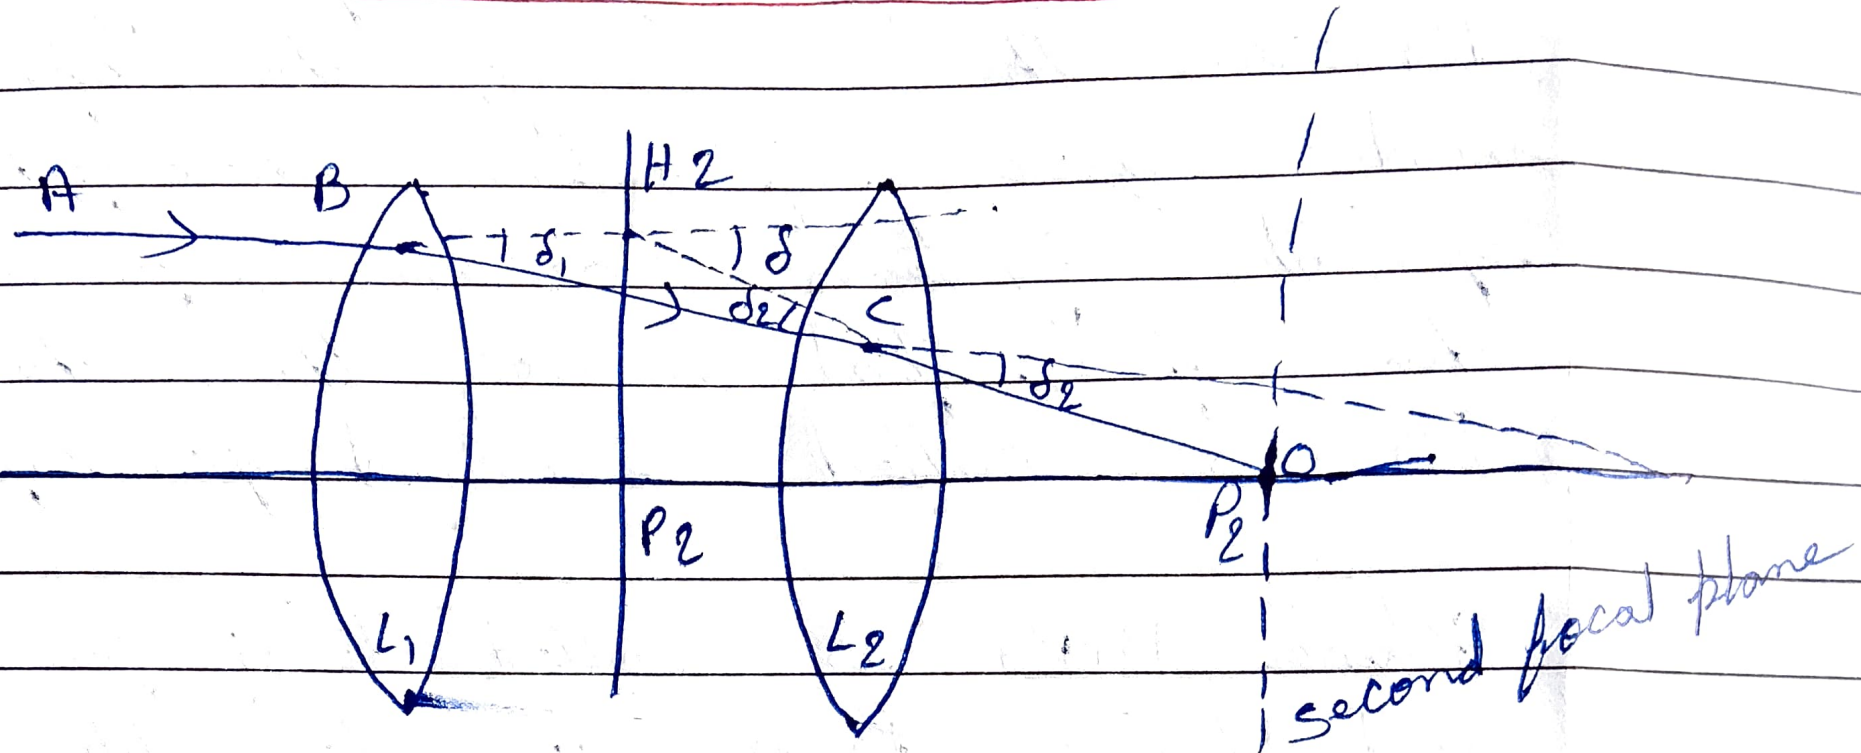 H2
A
B
δ₁
δ
δ₂
C
δ₂
O
P₂
P₂
L₁
L₂
second focal plane